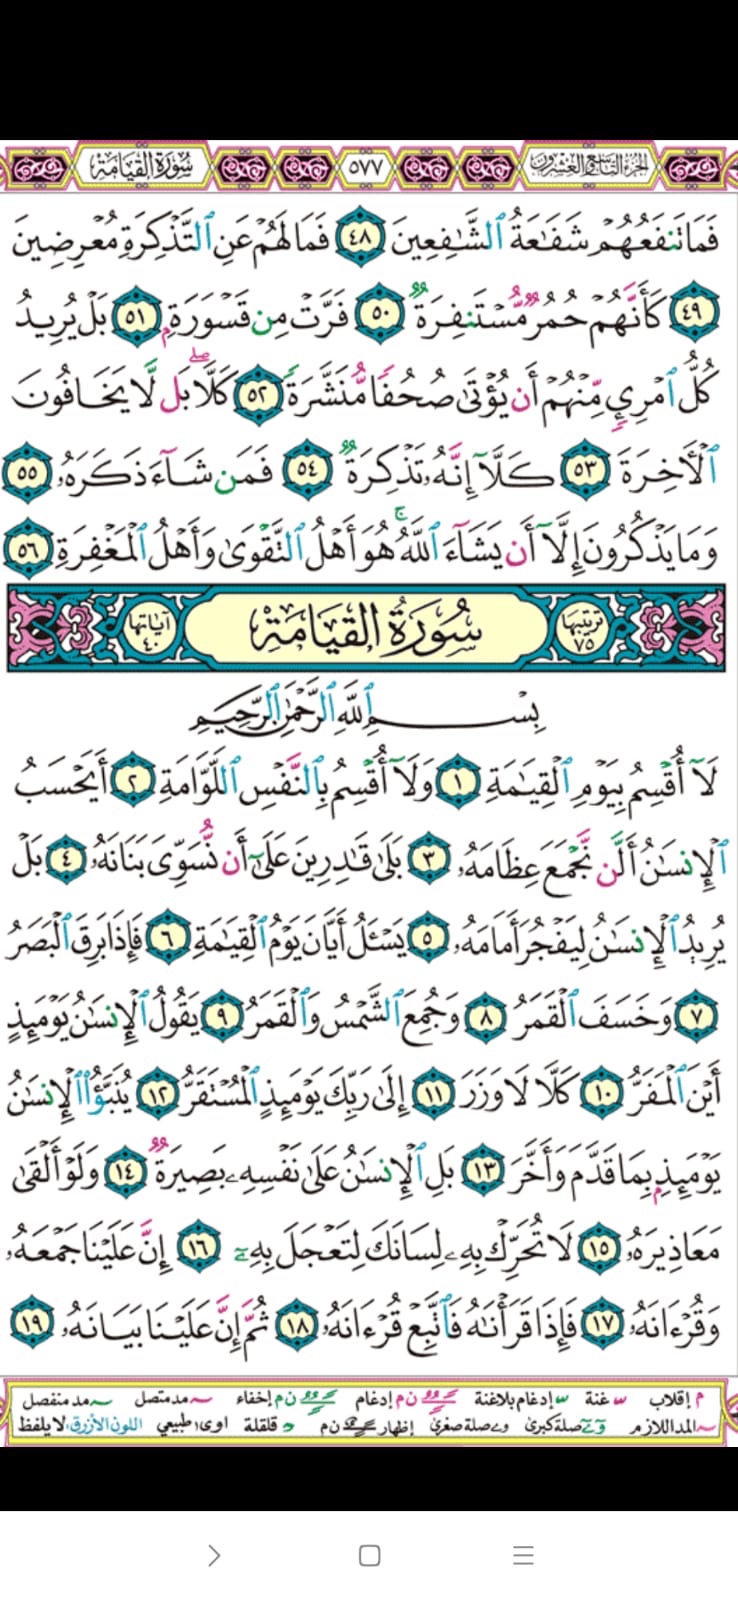 الجزء التاسع والعشرون ٥٧٧ سُورَةُ القِيَامَة
فَمَا تَنفَعُهُمْ شَفَٰعَةُ ٱلشَّٰفِعِينَ ٤٨ فَمَا لَهُمْ عَنِ ٱلتَّذْكِرَةِ مُعْرِضِينَ
٤٩ كَأَنَّهُمْ حُمُرٌ مُّسْتَنفِرَةٌ ٥٠ فَرَّتْ مِن قَسْوَرَةٍۭ ٥١ بَلْ يُرِيدُ
كُلُّ ٱمْرِئٍ مِّنْهُمْ أَن يُؤْتَىٰ صُحُفًا مُّنَشَّرَةً ٥٢ كَلَّا ۖ بَل لَّا يَخَافُونَ
ٱلْأَخِرَةَ ٥٣ كَلَّآ إِنَّهُۥ تَذْكِرَةٌ ٥٤ فَمَن شَآءَ ذَكَرَهُۥ ٥٥
وَمَا يَذْكُرُونَ إِلَّآ أَن يَشَآءَ ٱللَّهُ ۚ هُوَ أَهْلُ ٱلتَّقْوَىٰ وَأَهْلُ ٱلْمَغْفِرَةِ ٥٦
ترتيبها ٧٥ سُورَةُ القِيَامَةِ آياتها ٤٠
بِسْمِ ٱللَّهِ ٱلرَّحْمَٰنِ ٱلرَّحِيمِ
لَآ أُقْسِمُ بِيَوْمِ ٱلْقِيَٰمَةِ ١ وَلَآ أُقْسِمُ بِٱلنَّفْسِ ٱللَّوَّامَةِ ٢ أَيَحْسَبُ
ٱلْإِنسَٰنُ أَلَّن نَّجْمَعَ عِظَامَهُۥ ٣ بَلَىٰ قَٰدِرِينَ عَلَىٰٓ أَن نُّسَوِّىَ بَنَانَهُۥ ٤ بَلْ
يُرِيدُ ٱلْإِنسَٰنُ لِيَفْجُرَ أَمَامَهُۥ ٥ يَسْـَٔلُ أَيَّانَ يَوْمُ ٱلْقِيَٰمَةِ ٦ فَإِذَا بَرِقَ ٱلْبَصَرُ
٧ وَخَسَفَ ٱلْقَمَرُ ٨ وَجُمِعَ ٱلشَّمْسُ وَٱلْقَمَرُ ٩ يَقُولُ ٱلْإِنسَٰنُ يَوْمَئِذٍ
أَيْنَ ٱلْمَفَرُّ ١٠ كَلَّا لَا وَزَرَ ١١ إِلَىٰ رَبِّكَ يَوْمَئِذٍ ٱلْمُسْتَقَرُّ ١٢ يُنَبَّؤُا۟ ٱلْإِنسَٰنُ
يَوْمَئِذٍۭ بِمَا قَدَّمَ وَأَخَّرَ ١٣ بَلِ ٱلْإِنسَٰنُ عَلَىٰ نَفْسِهِۦ بَصِيرَةٌ ١٤ وَلَوْ أَلْقَىٰ
مَعَاذِيرَهُۥ ١٥ لَا تُحَرِّكْ بِهِۦ لِسَانَكَ لِتَعْجَلَ بِهِۦٓ ١٦ إِنَّ عَلَيْنَا جَمْعَهُۥ
وَقُرْءَانَهُۥ ١٧ فَإِذَا قَرَأْنَٰهُ فَٱتَّبِعْ قُرْءَانَهُۥ ١٨ ثُمَّ إِنَّ عَلَيْنَا بَيَانَهُۥ ١٩
م إقلاب غنة إدغام بلاغنة ن م إدغام ن م إخفاء مد متصل مد منفصل
المد اللازم صلة كبرى صلة صغرى إظهار ن م قلقلة اوى طبيعي اللون الأزرق، لا يلفظ